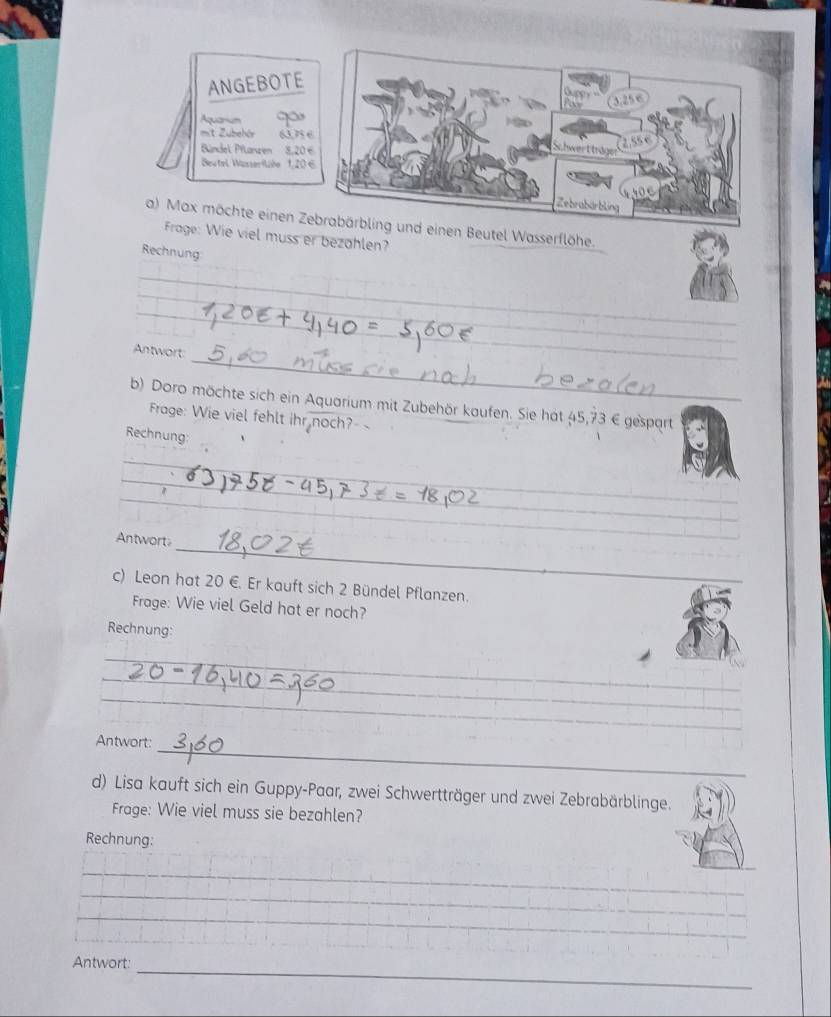 ANGEBOTE
Aquarium
mit Zubehör 63,75 €
Bündel Pflanzen 8,20 €
Beutel Wasserflöhe 1,20 €
Guppy-
Paar 3,25 €
Schwertträger 2,55 €
Zebrabärbling 4,40 €
a) Max möchte einen Zebrabärbling und einen Beutel Wasserflöhe.
Frage: Wie viel muss er bezahlen?
Rechnung:
1,20€ + 4,40 = 5,60 €
Antwort: 5,60 müss sie noch bezalen
b) Doro möchte sich ein Aquarium mit Zubehör kaufen. Sie hat 45,73 € gespart
Frage: Wie viel fehlt ihr noch?
Rechnung:
63,75€ - 45,73€ = 18,02
Antwort: 18,02€
c) Leon hat 20 €. Er kauft sich 2 Bündel Pflanzen.
Frage: Wie viel Geld hat er noch?
Rechnung:
20 - 16,40 = 3,60
Antwort: 3,60
d) Lisa kauft sich ein Guppy-Paar, zwei Schwertträger und zwei Zebrabärblinge.
Frage: Wie viel muss sie bezahlen?
Rechnung:
Antwort: